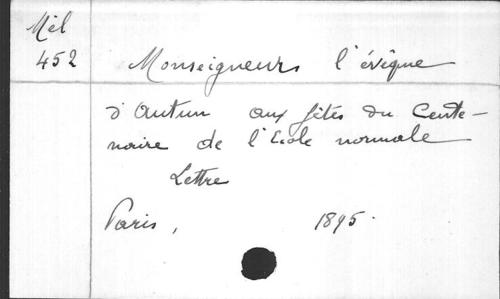 Mél
452
Monseigneur l'évêque
d'Autun aux fêtes du Cente-
naire de l'Ecole normale
Lettre
Paris, 1895.